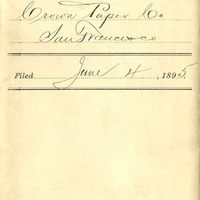 Crown Paper Co
San Francisco
Filed June 4, 1895